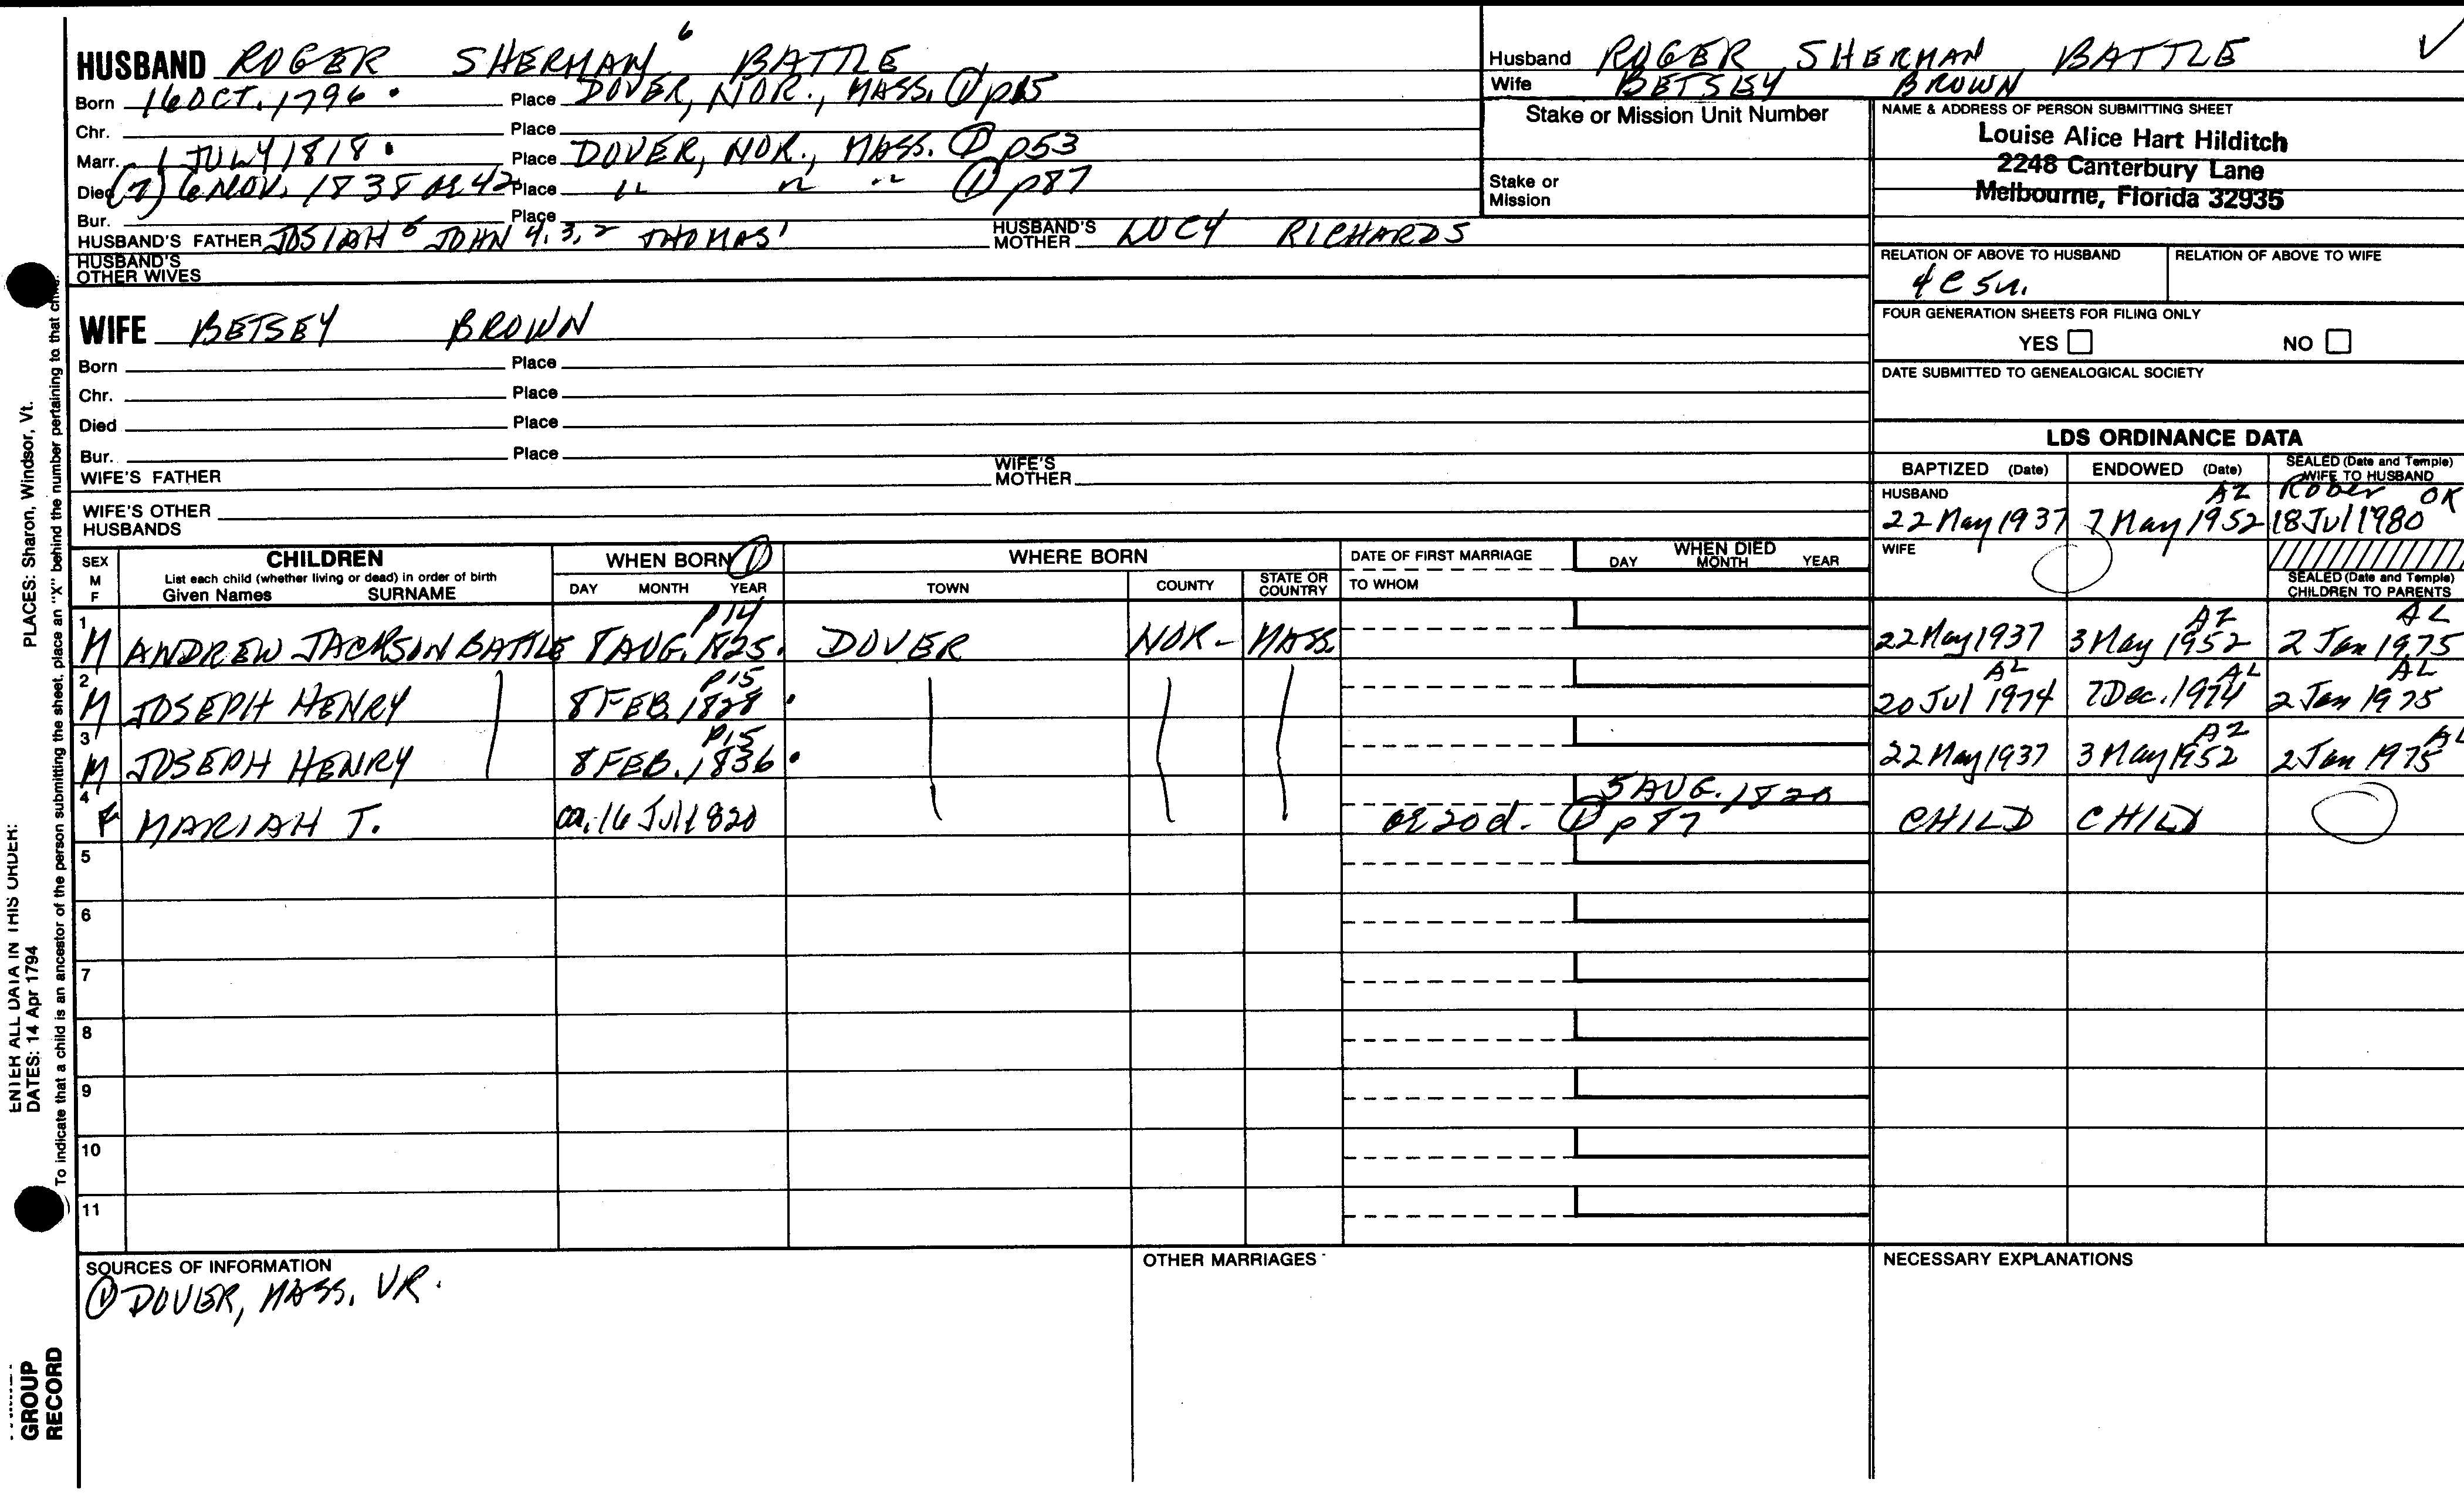 HUSBAND ROGER SHERMAN 6 BATTLE
Born 16 OCT. 1796 . Place DOVER, NOR., MASS. ① p15
Chr. Place
Marr. 1 JULY 1818 . Place DOVER, NOR., MASS. ① p53
Died (?) 6 NOV. 1838 OR 42 Place " " " ① p87
Bur. Place
HUSBAND'S FATHER JOSIAH 5 JOHN 4,3,2 THOMAS 1 HUSBAND'S MOTHER LUCY RICHARDS
HUSBAND'S OTHER WIVES
WIFE BETSEY BROWN
Born Place
Chr. Place
Died Place
Bur. Place
WIFE'S FATHER WIFE'S MOTHER
WIFE'S OTHER HUSBANDS
Husband ROGER SHERMAN BATTLE ✓
Wife BETSEY BROWN
Stake or Mission Unit Number
Stake or Mission
NAME & ADDRESS OF PERSON SUBMITTING SHEET
Louise Alice Hart Hilditch
2248 Canterbury Lane
Melbourne, Florida 32935
RELATION OF ABOVE TO HUSBAND RELATION OF ABOVE TO WIFE
4 C 5 r.
FOUR GENERATION SHEETS FOR FILING ONLY
YES NO
DATE SUBMITTED TO GENEALOGICAL SOCIETY
LDS ORDINANCE DATA
BAPTIZED (Date) ENDOWED (Date) SEALED (Date and Temple) WIFE TO HUSBAND
HUSBAND AZ OK
22 May 1937 7 May 1952 18 Jul 1980
WIFE
SEALED (Date and Temple)
CHILDREN TO PARENTS
SEX CHILDREN WHEN BORN ① WHERE BORN DATE OF FIRST MARRIAGE WHEN DIED
M List each child (whether living or dead) in order of birth DAY MONTH YEAR
F Given Names SURNAME DAY MONTH YEAR TOWN COUNTY STATE OR COUNTRY TO WHOM
1 P14 AZ AL
M ANDREW JACKSON BATTLE 8 AUG. 1825. DOVER NOR- MASS. 22 May 1937 3 May 1952 2 Jan 1975
2 P15 AL AL AL
M JOSEPH HENRY 8 FEB. 1828 . 20 Jul 1974 7 Dec. 1974 2 Jan 1975
3 P15 AZ AL
M JOSEPH HENRY 8 FEB. 1836 . 22 May 1937 3 May 1952 2 Jan 1975
4 5 AUG. 1820
F MARIAH T. ca. 16 Jul 1820 ae 20 d. ① p87 CHILD CHILD
5
6
7
8
9
10
11
SOURCES OF INFORMATION OTHER MARRIAGES NECESSARY EXPLANATIONS
① DOVER, MASS. VR.
ENTER ALL DATA IN THIS ORDER: PLACES: Sharon, Windsor, Vt.
DATES: 14 Apr 1794
To indicate that a child is an ancestor of the person submitting the sheet, place an "X" behind the number pertaining to that child.
GROUP
RECORD